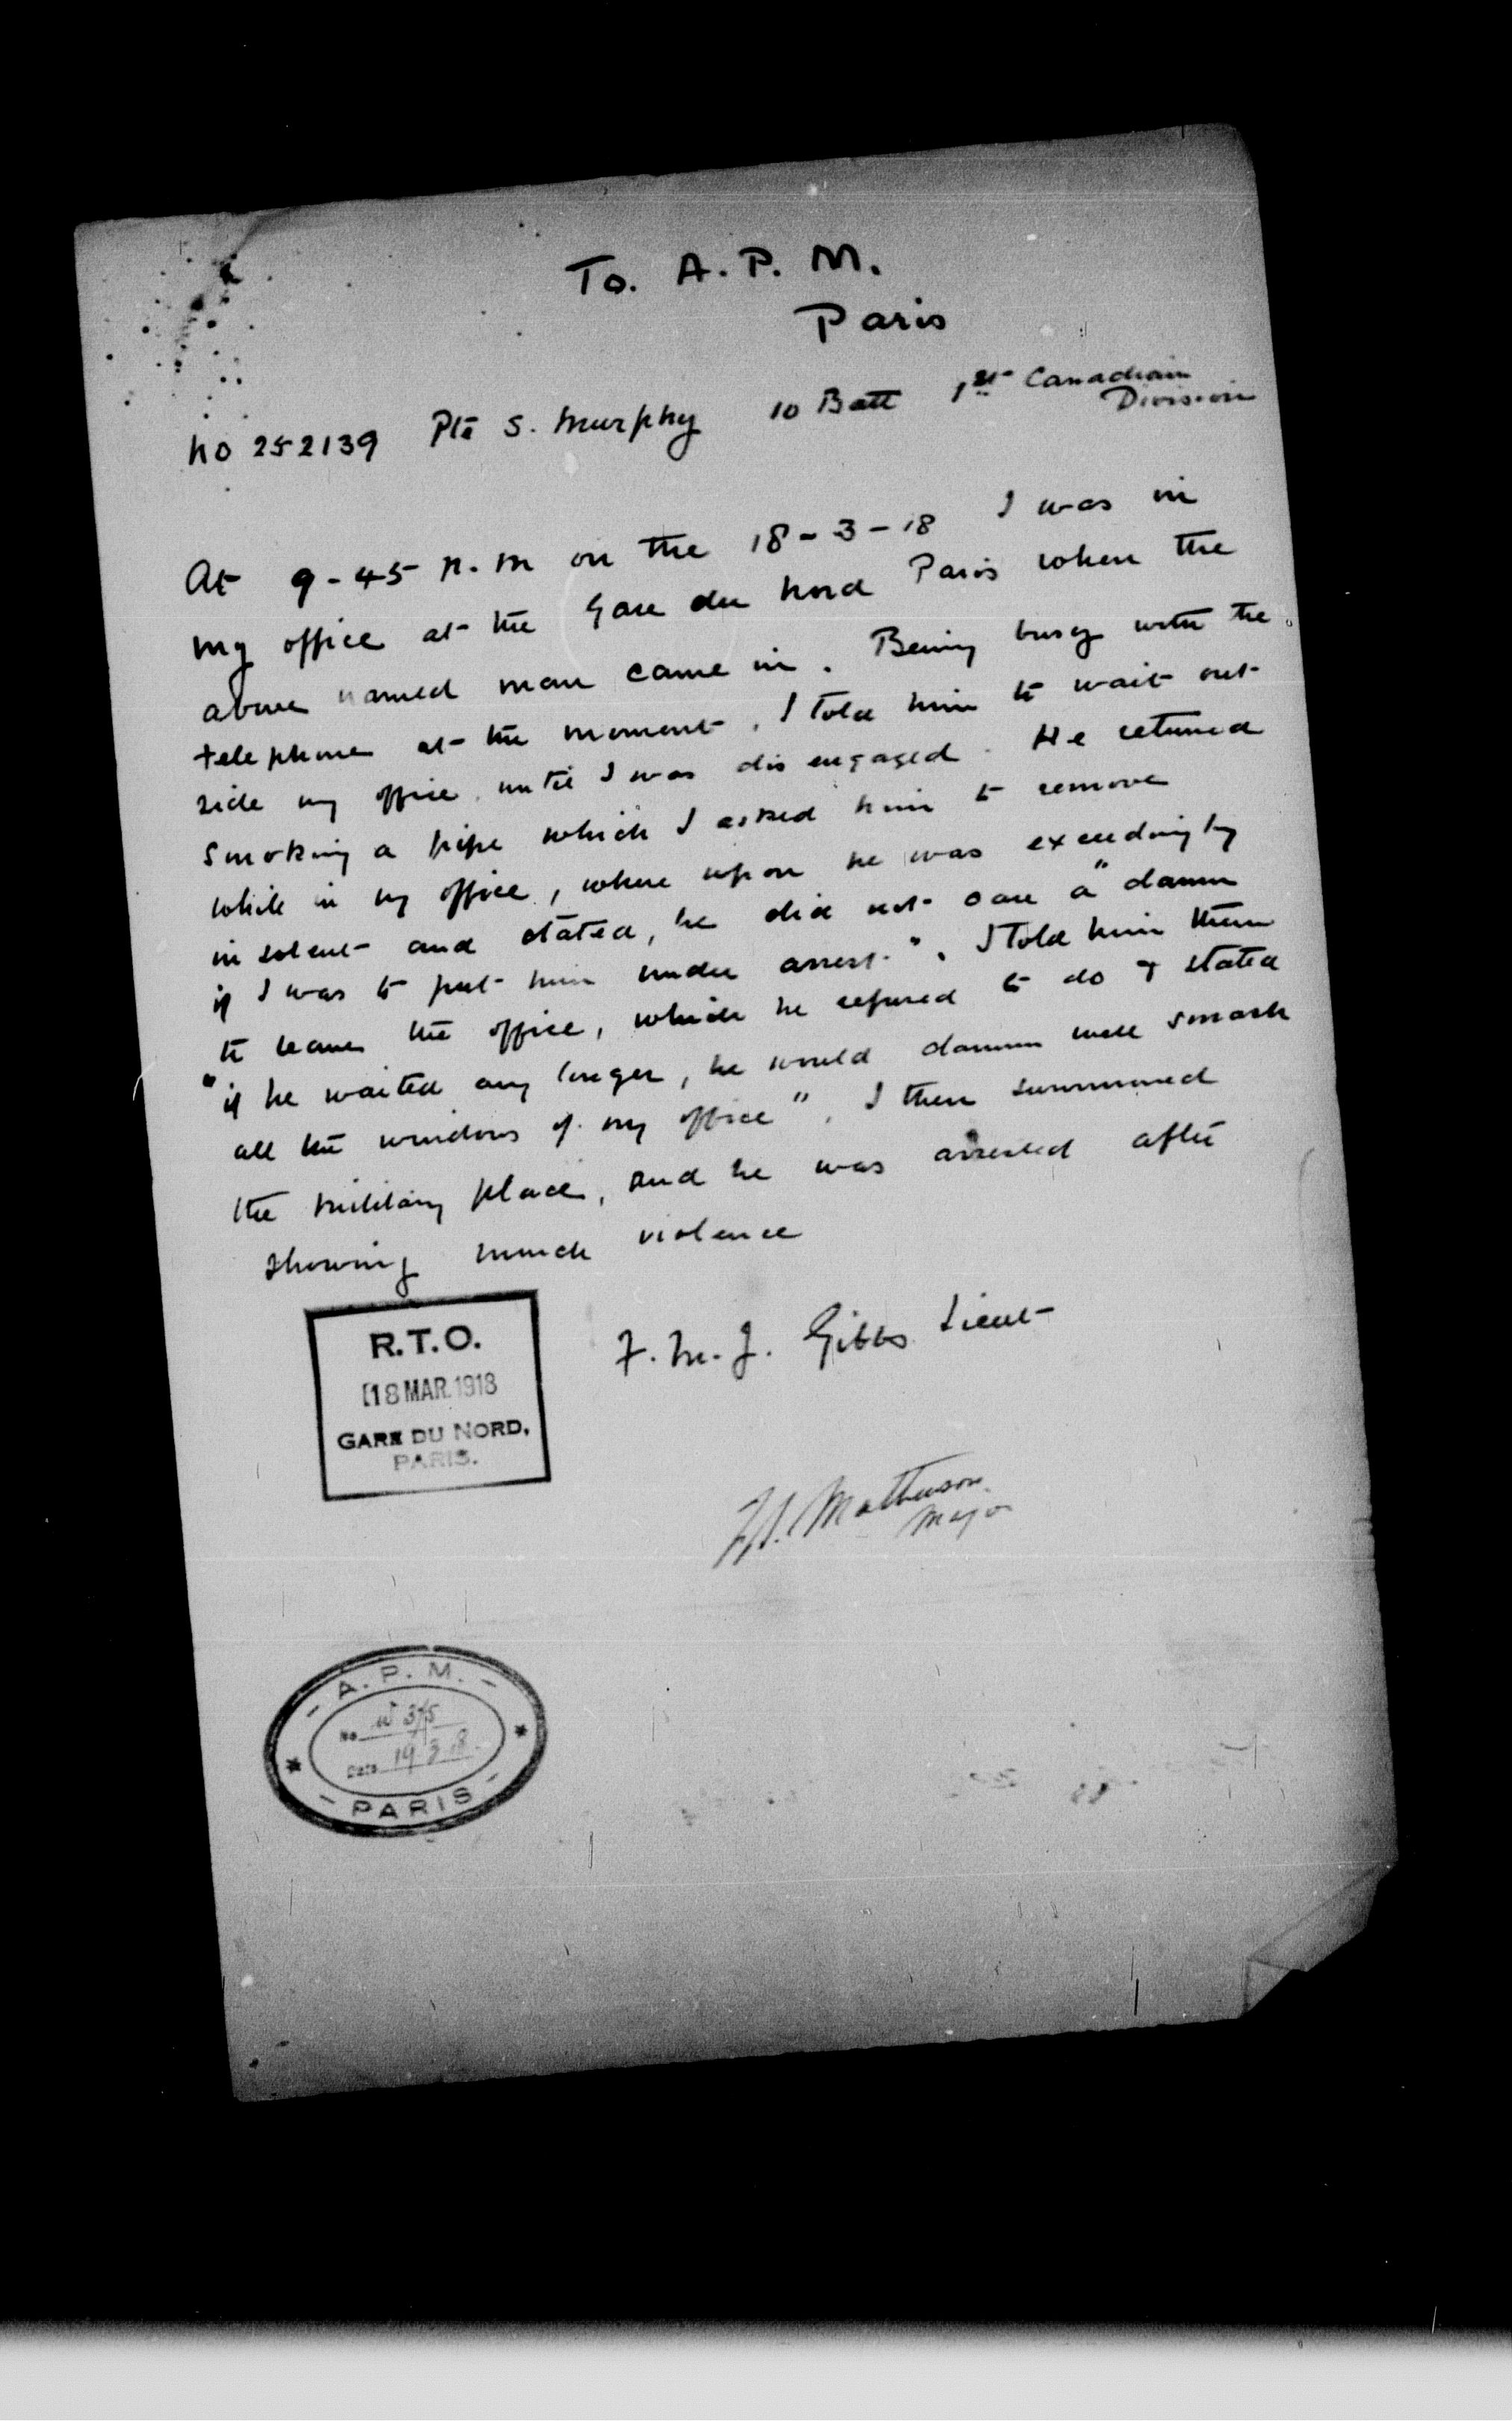 To. A. P. M.
Paris
No 252139 Pte S. Murphy 10 Batt 1st Canadian
Division
At 9-45 p.m on the 18-3-18 I was in
my office at the Gare du Nord Paris when the
above named man came in. Being busy with the
telephone at the moment, I told him to wait out-
side my office until I was disengaged. He returned
smoking a pipe which I asked him to remove
while in my office, where upon he was exceedingly
insolent and stated, he did not care a "damn
if I was to put him under arrest". I told him then
to leave the office, which he refused to do & stated
"if he waited any longer, he would damn well smash
all the windows of my office". I then summoned
the military place, and he was arrested after
showing much violence
F. M. J. Gibbs Lieut
R.T.O.
18 MAR. 1918
GARE DU NORD,
PARIS.
Matheson
Major
- A. P. M. -
No. W 375
Date 19.3.18.
- PARIS -